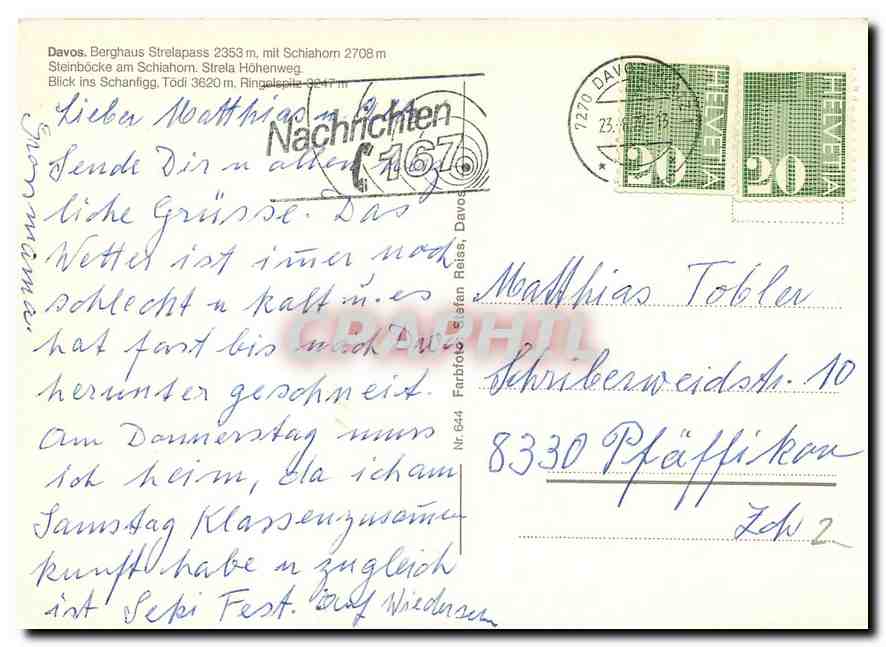 Davos. Berghaus Strelapass 2353 m, mit Schiahorn 2708 m
Steinböcke am Schiahorn. Strela Höhenweg.
Blick ins Schanfigg, Tödi 3620 m, Ringelspitz 3247 m
Nachrichten
167
7270 DAVOS
23.
HELVETIA
20
HELVETIA
20
Lieber Matthias u
Sende Dir u allen
liche Grüsse. Das
Wetter ist immer noch
schlecht u kalt u. es
hat fast bis nach Davos
herunter geschneit.
Am Donnerstag muss
ich heim, da ich am
Samstag Klassenzusammen
kunft habe u zugleich
ist Seki Fest. Auf Wiedersehn
Grossmama
Nr. 644 Farbfoto Stefan Reiss, Davos
DELCAMPE
Matthias Tobler
Schriberweidstr. 10
8330 Pfäffikon
Zch
2